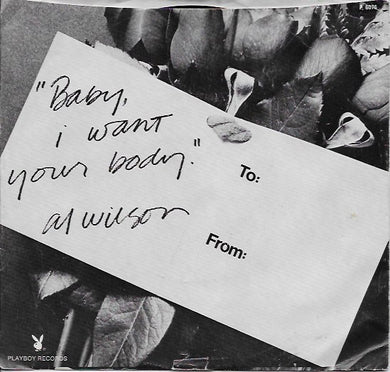 P 6076
"Baby,
i want
your body."
al wilson
To:
From:
PLAYBOY RECORDS